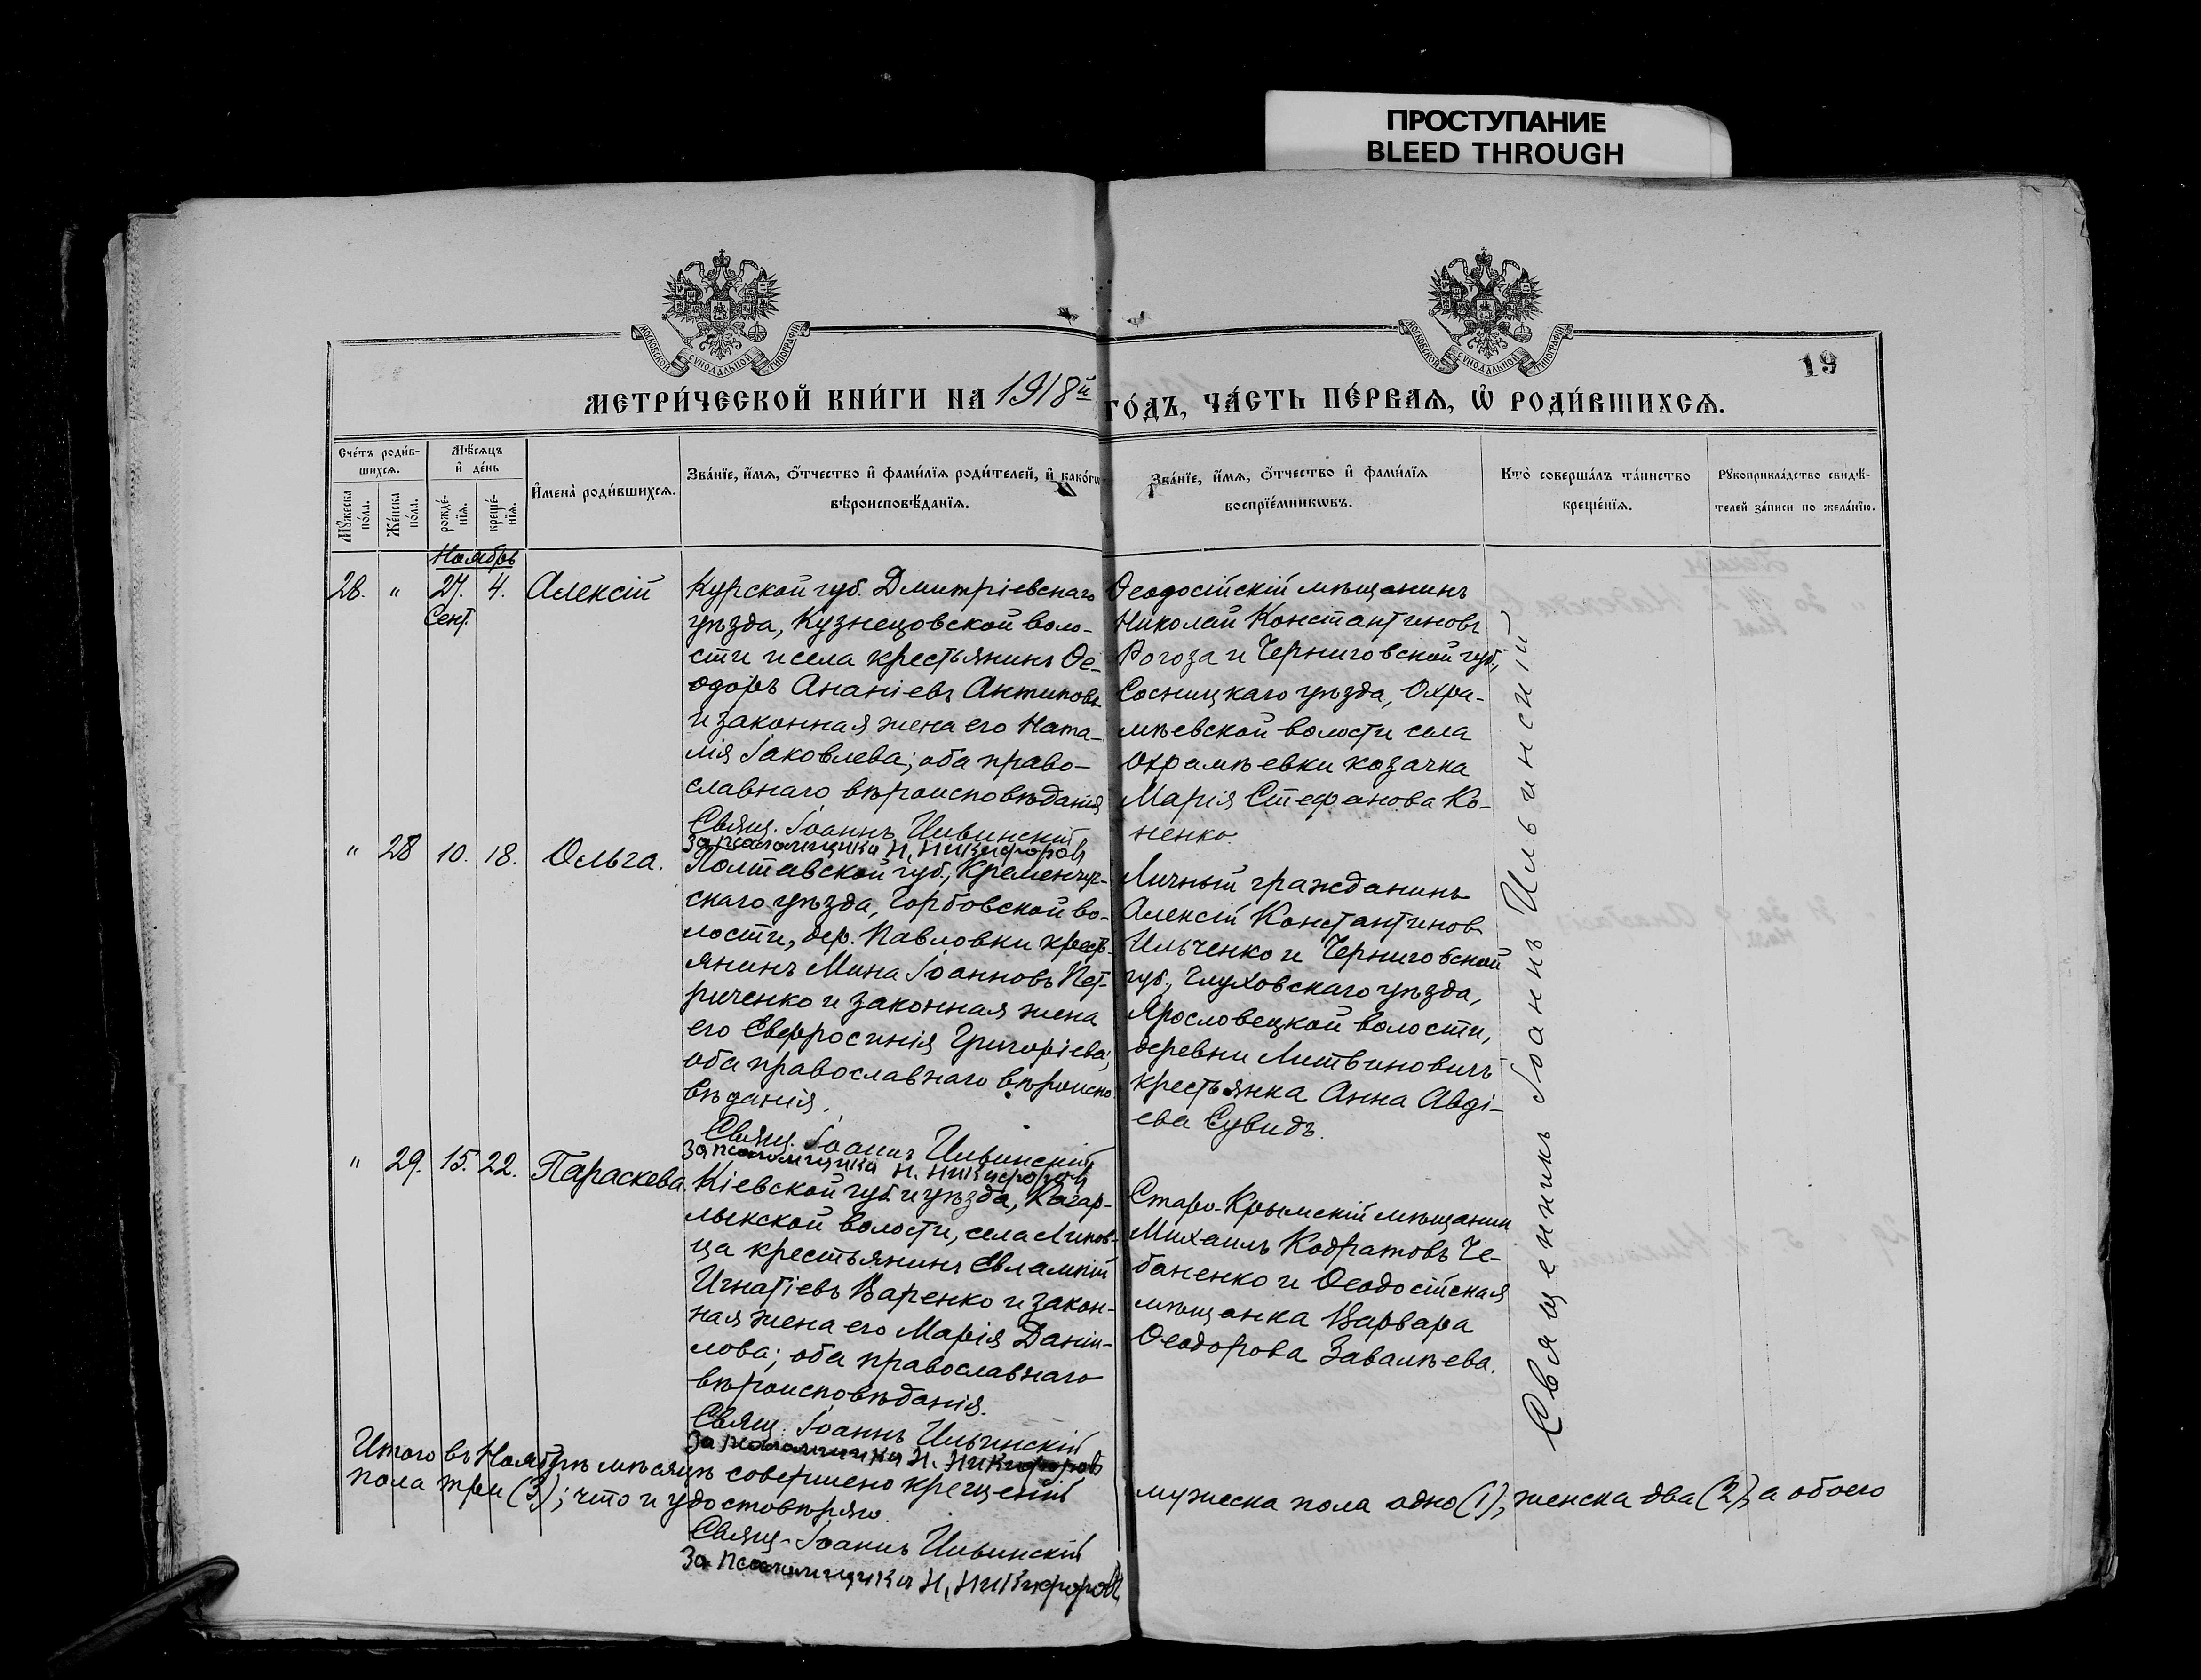 ПРОСТУПАНИЕ
BLEED THROUGH
МОСКОВСКОЙ СѴНОДАЛЬНОЙ ТИПОГРАФІИ
МОСКОВСКОЙ СѴНОДАЛЬНОЙ ТИПОГРАФІИ
19
МЕТРИ́ЧЕСКОЙ КНИ́ГИ НА 1918й ГО́ДЪ, ЧА́СТЬ ПЕ́РВАЯ, Ѡ҆ РОДИ́ВШИХСѦ.
Сче́тъ роди́в-
шихсѧ.
Мꙋ́жеска по́ла.
Же́нска по́ла.
Мѣ́сѧцъ
и҆ де́нь
рожде́-
нїѧ.
креще́-
нїѧ.
И҆мена̀ роди́вшихсѧ.
Зва́нїе, и҆́мѧ, ѻ҆́тчество и҆ фами́лїѧ роди́телей, и҆ како́гѡ
вѣроисповѣ́данїѧ.
Зва́нїе, и҆́мѧ, ѻ҆́тчество и҆ фами́лїѧ
воспрїе́мникѡвъ.
Кто̀ соверша́лъ та́инство
креще́нїѧ.
Рꙋкоприкла́дство свидѣ́-
телей за́писи по жела́нїю.
Ноябрь
28. " 27. 4. Алексій
Сент.
Курской губ. Дмитріевскаго
уѣзда, Кузнецовской воло-
сти и села крестьянинъ Ѳе-
одоръ Ананіевъ Антиповъ
и законная жена его Ната-
лія Іаковлева; оба право-
славнаго вѣроисповѣданія
Свящ. Іоаннъ Ильинскій
За псаломщика Н. Никифоровъ
Ѳеодосійскій мѣщанинъ
Николай Константиновъ
Рогоза и Черниговской губ.,
Сосницкаго уѣзда, Охра-
мѣевской волости села
Охрамѣевки козачка
Марія Стефанова Ко-
ненко.
" 28 10. 18. Ольга.
Полтавской губ., Кременчуг-
скаго уѣзда, Горбовской во-
лости, дер. Павловки крест-
янинъ Мина Іоанновъ Пет-
риченко и законная жена
его Евфросинія Григоріева;
оба православнаго вѣроиспо-
вѣданія.
Свящ. Іоаннъ Ильинскій
За псаломщика Н. Никифоровъ
Личный гражданинъ
Алексій Константинов
Ильченко и Черниговской
губ., Глуховскаго уѣзда,
Ярославецкой волости,
деревни Литвиновичъ
крестьянка Анна Авді-
ева Сувидъ.
" 29. 15. 22. Параскева.
Кіевской губ. и уѣзда, Кагар-
лыкской волости, села Липов-
ца крестьянинъ Евлампій
Игнатіевъ Варенко и закон-
ная жена его Марія Даніи-
лова; оба православнаго
вѣроисповѣданія.
Свящ. Іоаннъ Ильинскій
За псаломщика Н. Никифоровъ
Старо-Крымскій мѣщанин
Михаилъ Кодратовъ Че-
баненко и Ѳеодосійская
мѣщанка Варвара
Ѳеодорова Завалѣева.
Священникъ Іоаннъ Ильинскій
Итого въ Ноябрѣ мѣсяцѣ совершено крещеній мужеска пола одно (1); женска два (2), а обоего
пола три (3); что и удостовѣряю.
Свящ. Іоаннъ Ильинскій
За псаломщика Н. Никифоровъ